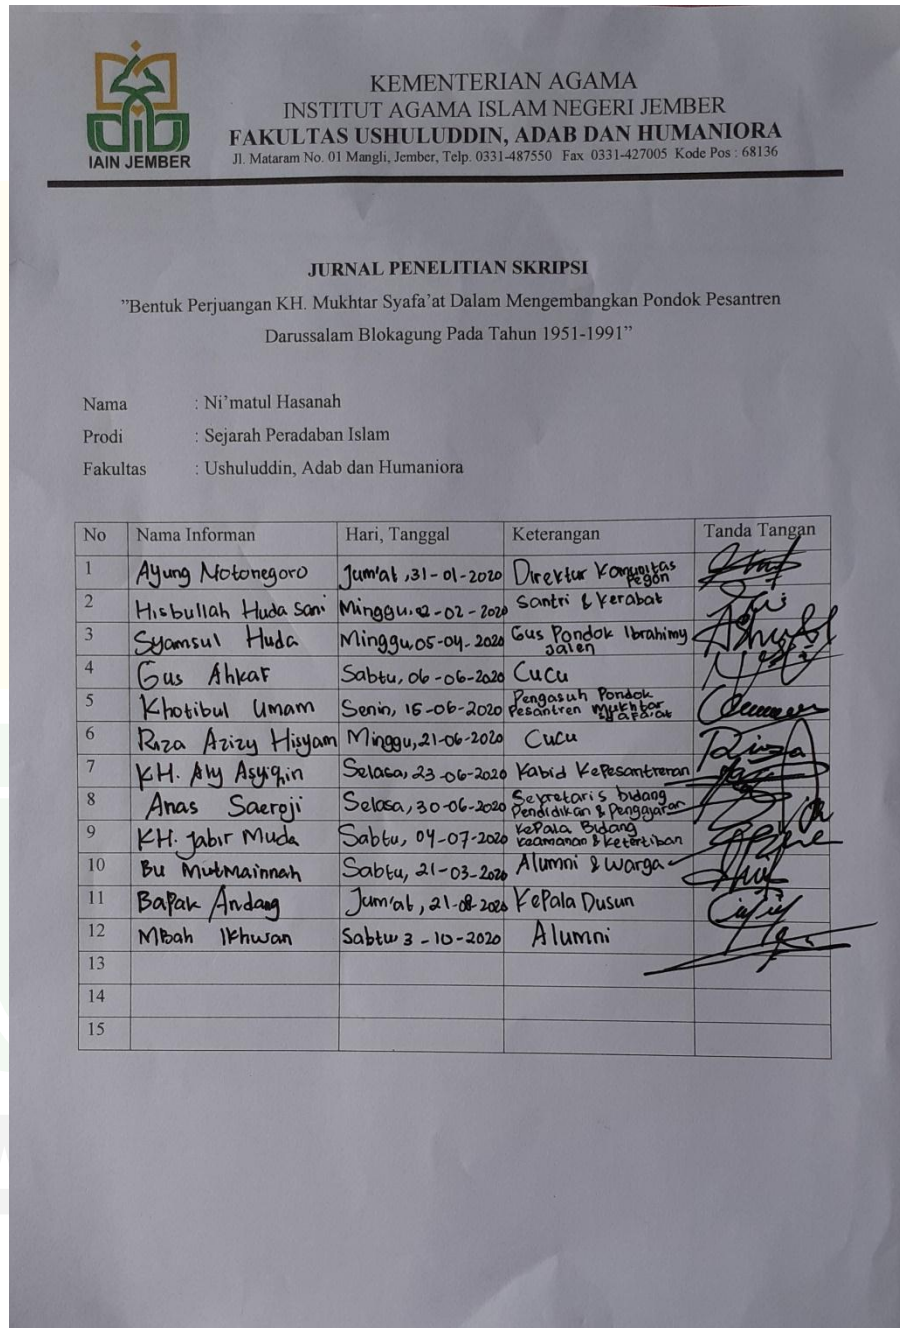 IAIN JEMBER
KEMENTERIAN AGAMA
INSTITUT AGAMA ISLAM NEGERI JEMBER
FAKULTAS USHULUDDIN, ADAB DAN HUMANIORA
Jl. Mataram No. 01 Mangli, Jember, Telp. 0331-487550 Fax 0331-427005 Kode Pos : 68136
JURNAL PENELITIAN SKRIPSI
”Bentuk Perjuangan KH. Mukhtar Syafa’at Dalam Mengembangkan Pondok Pesantren
Darussalam Blokagung Pada Tahun 1951-1991”
Nama : Ni’matul Hasanah
Prodi : Sejarah Peradaban Islam
Fakultas : Ushuluddin, Adab dan Humaniora
No Nama Informan Hari, Tanggal Keterangan Tanda Tangan
1 Ayung Notonegoro Jum'at, 31-01-2020 Direktur Komunitas Pegon
2 Hisbullah Huda Sani Minggu, 02-02-2020 Santri & Kerabat
3 Syamsul Huda Minggu 05-04-2020 Gus Pondok Ibrahimy Jalen
4 Gus Ahkaf Sabtu, 06-06-2020 Cucu
5 Khotibul Umam Senin, 15-06-2020 Pengasuh Pondok Pesantren Mukhtar Syafa'at
6 Riza Azizy Hisyam Minggu, 21-06-2020 Cucu
7 KH. Aly Asyiqin Selasa, 23-06-2020 Kabid Kepesantreran
8 Anas Saeroji Selasa, 30-06-2020 Sekretaris bidang Pendidikan & Pengajaran
9 KH. Jabir Muda Sabtu, 04-07-2020 Kepala Bidang Keamanan & Ketertiban
10 Bu Mutmainnah Sabtu, 21-03-2020 Alumni & Warga
11 Bapak Andang Jum'at, 21-08-2020 Kepala Dusun
12 Mbah Ikhwan Sabtu 3-10-2020 Alumni
13
14
15